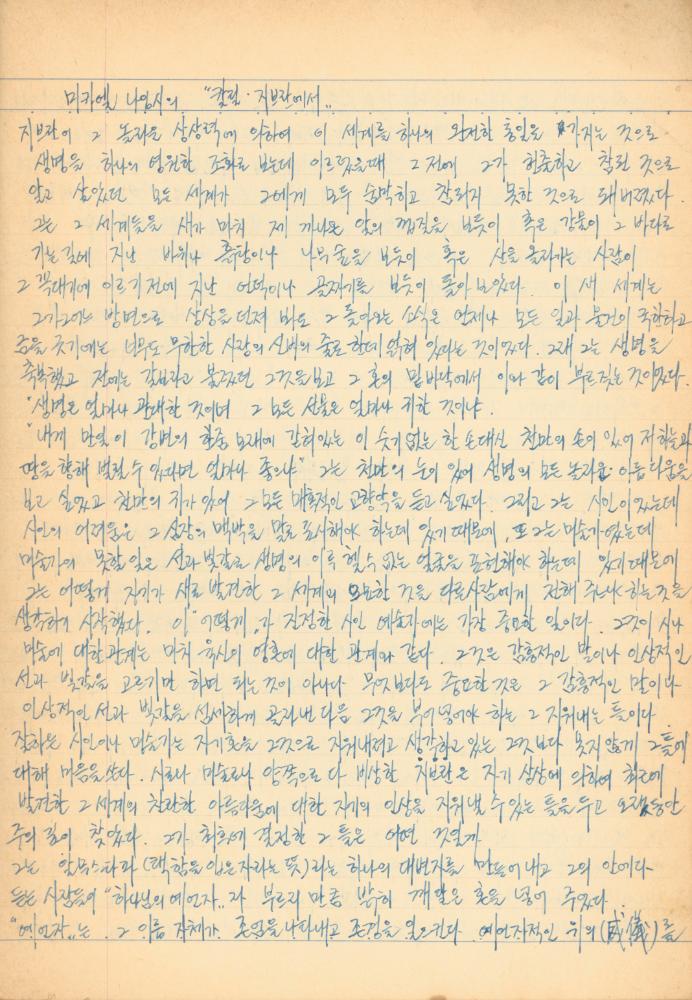 미카엘 나이시의 "칼릴·지브란에서"
지브란이 그 놀라운 상상력에 의하여 이 세계를 하나의 완전한 통일을 가지는 것으로
생명을 하나의 영원한 조화로 보는데 이르렀을때 그 전에 그가 허출하고 참된 것으로
알고 살았던 모든 세계가 그에게 모두 숨막히고 참되지 못한 것으로 돼 버렸다.
그는 그 세계들을 새가 마치 제 까나온 알의 껍질을 보듯이 혹은 강물이 그 바다로
가는 길에 지난 바위나 흙탕이나 나무숲을 보듯이 혹은 산을 올라가는 사람이
그 꼭대기에 이르기 전에 지난 언덕이나 골짜기를 보듯이 돌아 보았다. 이 새 세계는
그가 어느 방면으로 상상을 던져 봐도 그 돌아오는 소식은 언제나 모든 일과 물건이 측량하고
금을 긋기에는 너무도 무한한 사랑의 신비의 줄로 한데 얽혀 있다는 것이었다. 그래 그는 생명을
축복했고 전에는 갈보라고 불렀던 그것을 보고 그 혼의 밑바닥에서 이와 같이 부르짖는 것이었다.
"생명은 얼마나 관대한 것이며 그 모든 선물은 얼마나 귀한 것이냐.
"내게 만일 이 강변의 한줌 모래에 갇혀있는 이 숫기 없는 한 손대신 천만의 손이 있어 저 하늘과
땅을 향해 벌릴 수 있다면 얼마나 좋으냐" 그는 천만의 눈이 있어 생명의 모든 놀라움·아름다움을
보고 싶었고 천만의 귀가 있어 그 모든 매혹적인 교향악을 듣고 싶었다. 그리고 그는 시인이었는데
시인의 어려움은 그 심장의 맥박을 말로 표시해야 하는데 있기 때문에, 또 그는 미술가였는데
미술가의 못할 일은 선과 빛갈로 생명의 이루 헬 수 없는 얼굴을 표현해야 하는데 있기 때문에
그는 어떻게 자기가 새로 발견한 그 세계의 묘한 것을 다른사람에게 전해 주나 하는 것을
생각하기 시작했다. 이 "어떻게"가 진정한 시인 예술가에는 가장 중요한 일이다. 그것이 시나
미술에 대한 관계는 마치 육신이 영혼에 대한 관계와 같다. 그것은 감흥적인 말이나 인상적인
선과 빛갈을 고르기만 하면 되는 것이 아니다 무엇보다도 중요한 것은 그 감흥적인 말이나
인상적인 선과 빛갈을 섬세하게 골라낸 다음 그것을 부어넣어야 하는 그 지워내는 틀이다
잘하는 시인이나 미술가는 자기 혼을 그것으로 지워내려고 생각하고 있는 그것 보다 못지 않게 그 틀에
대해 마음을 쓴다. 시로나 미술로나 양쪽으로 다 비상한 지브란은 자기 상상에 의하여 최근에
발견한 그 세계의 찬란한 아름다움에 대한 자기의 인상을 지워낼 수 있는 틀을 두고 오랫동안
주의 깊이 찾았다. 그가 최후에 결정한 그 틀은 어떤 것일까
그는 알무스타파 (택함을 입은 자라는 뜻)라는 하나의 대변자를 만들어 내고 그의 안에다
듣는 사람들이 "하나님의 예언자"라 부르리 만큼 밝히 깨달은 혼을 넣어 주었다
"예언자"는 그 이름 자체가 존엄을 나타내고 존경을 일으킨다 예언자적인 위의(威儀)를